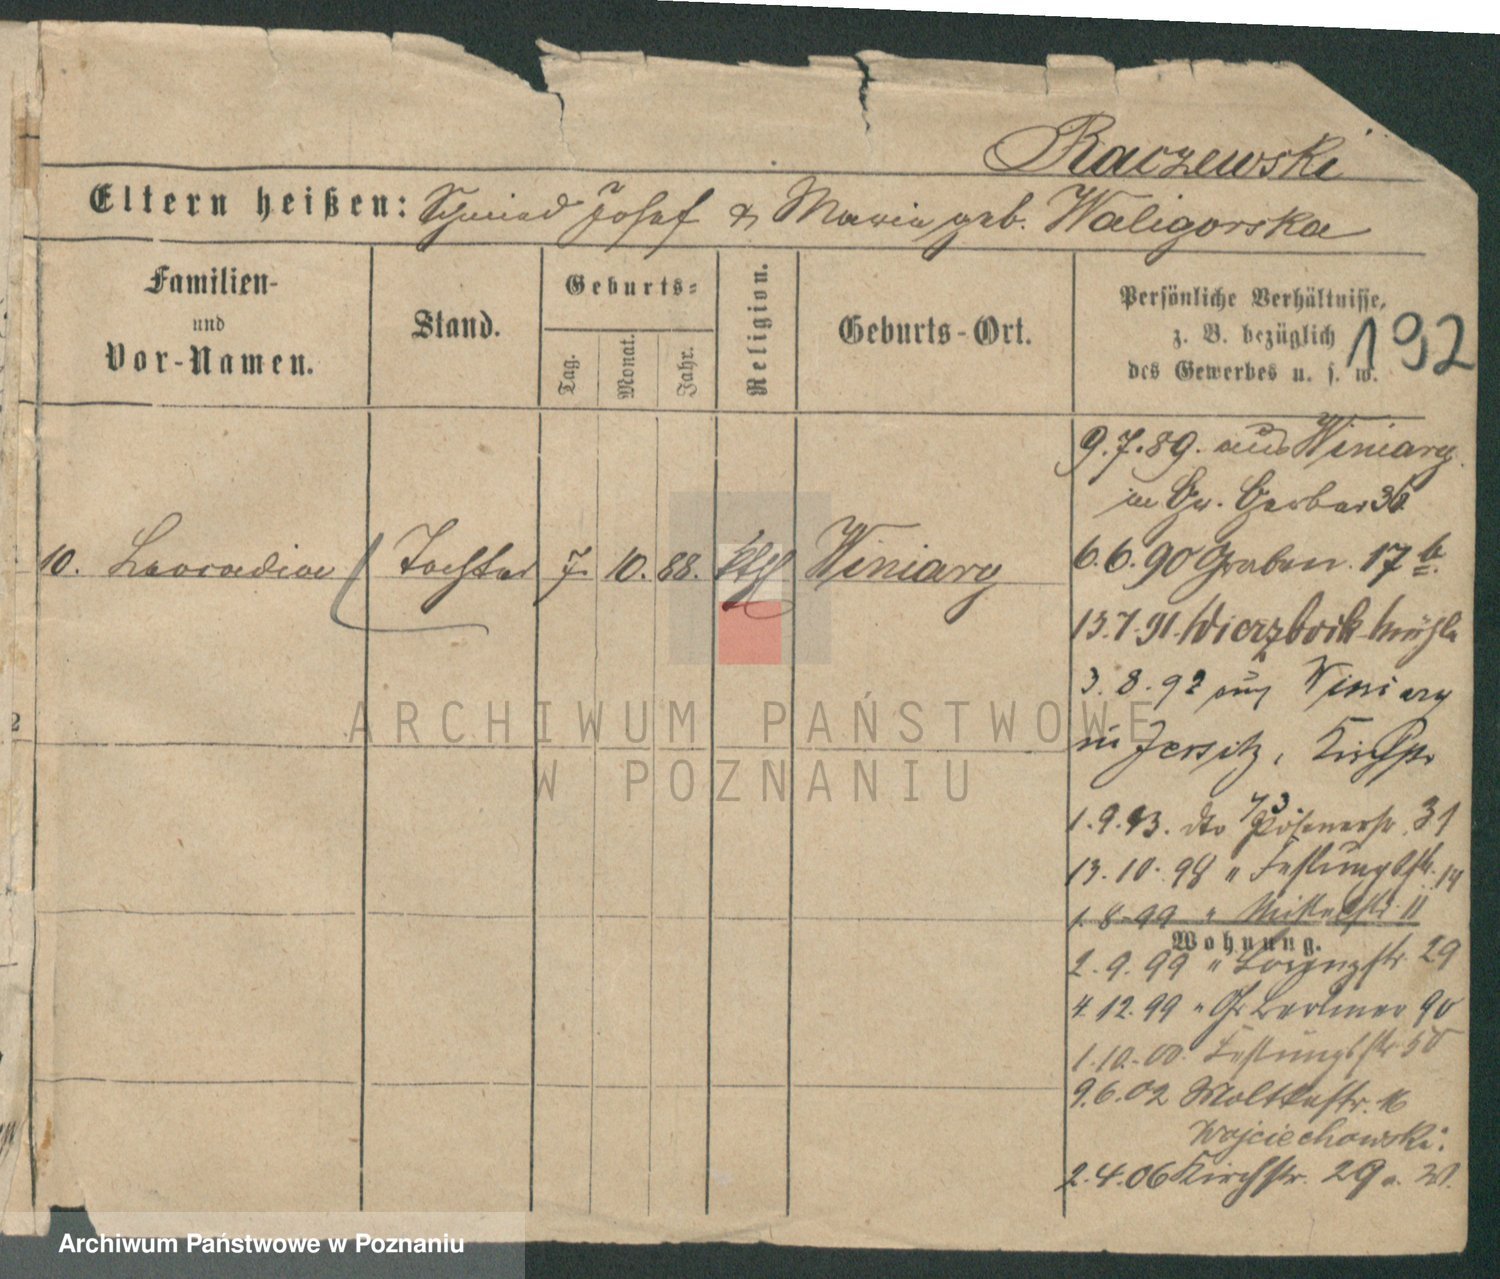 Raczewski
Eltern heißen: Schmied Josef & Maria geb. Waligorska
Familien-
und
Vor-Namen.
Stand.
Geburts-
Tag.
Monat.
Jahr.
Religion.
Geburts-Ort.
Persönliche Verhältnisse,
z. B. bezüglich
des Gewerbes u. s. w.
192
10. Leocadia Tochter 7. 10. 88. kth Winiary
9.7.89. aus Winiary
in Gr. Gerber 36
6.6.90 Graben 17 b.
13.7.91 Wierzbock Mühle
3.8.92 aus Winiary
in Jersitz, Kirchstr
1.9.93. dto Posenerstr. 31
13.10.98 " Festungsstr. 14
1.8.99 " Mittelstr. 11
Wohnung.
2.9.99 " 29
4.12.99 " Gr Berliner 90
1.10.00. Festungsstr 50
9.6.02 Moltkestr. 16
Wojciechowski.
2.4.06 Kirchstr. 29 a. W.
2
ARCHIWUM PAŃSTWOWE
W POZNANIU
Archiwum Państwowe w Poznaniu